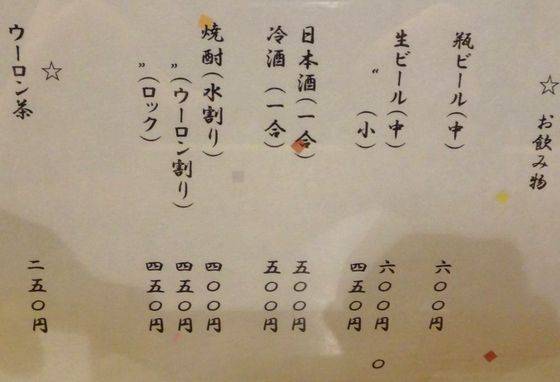 ☆ お飲み物
瓶ビール(中) 六〇〇円
生ビール(中) 六〇〇円
〃 (小) 四五〇円
日本酒(一合) 五〇〇円
冷酒 (一合) 五〇〇円
焼酎(水割り) 四〇〇円
〃(ウーロン割り) 四五〇円
〃(ロック) 四五〇円
☆
ウーロン茶 二五〇円